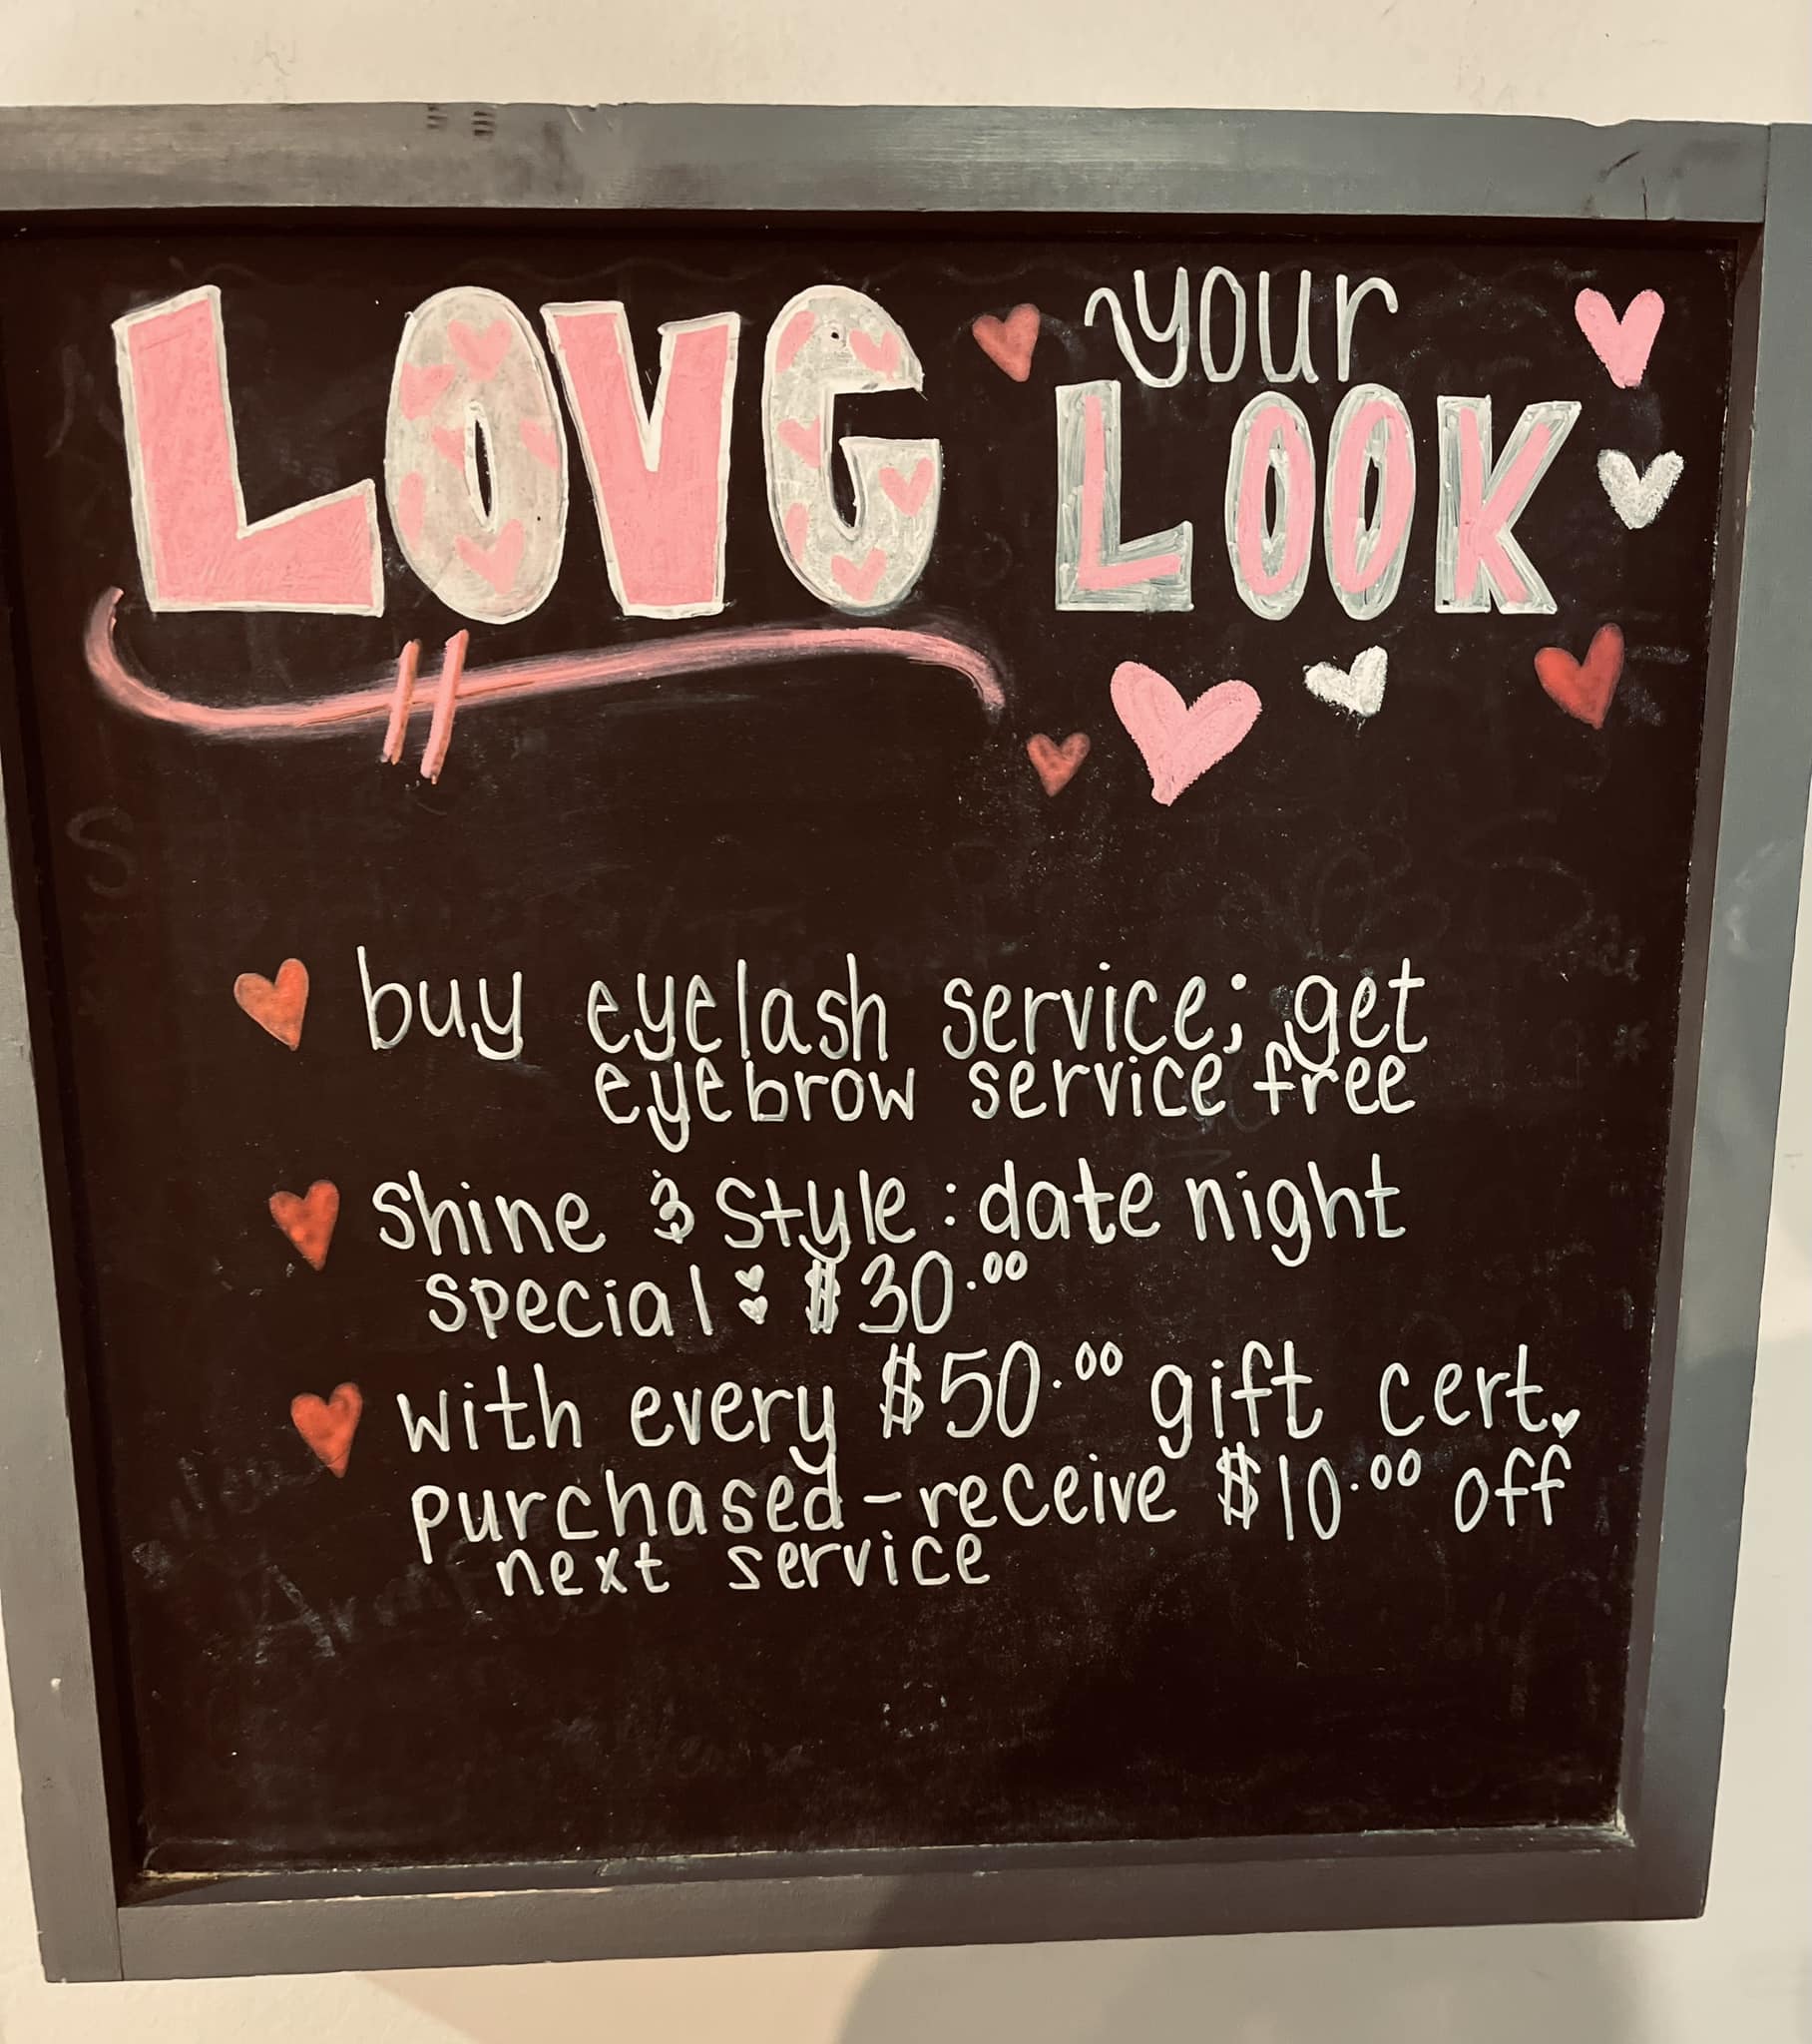 LOVE your
LOOK
buy eyelash service; get
eyebrow service free
Shine & Style: date night
special: $30.00
with every $50.00 gift cert.
purchased - receive $10.00 off
next service